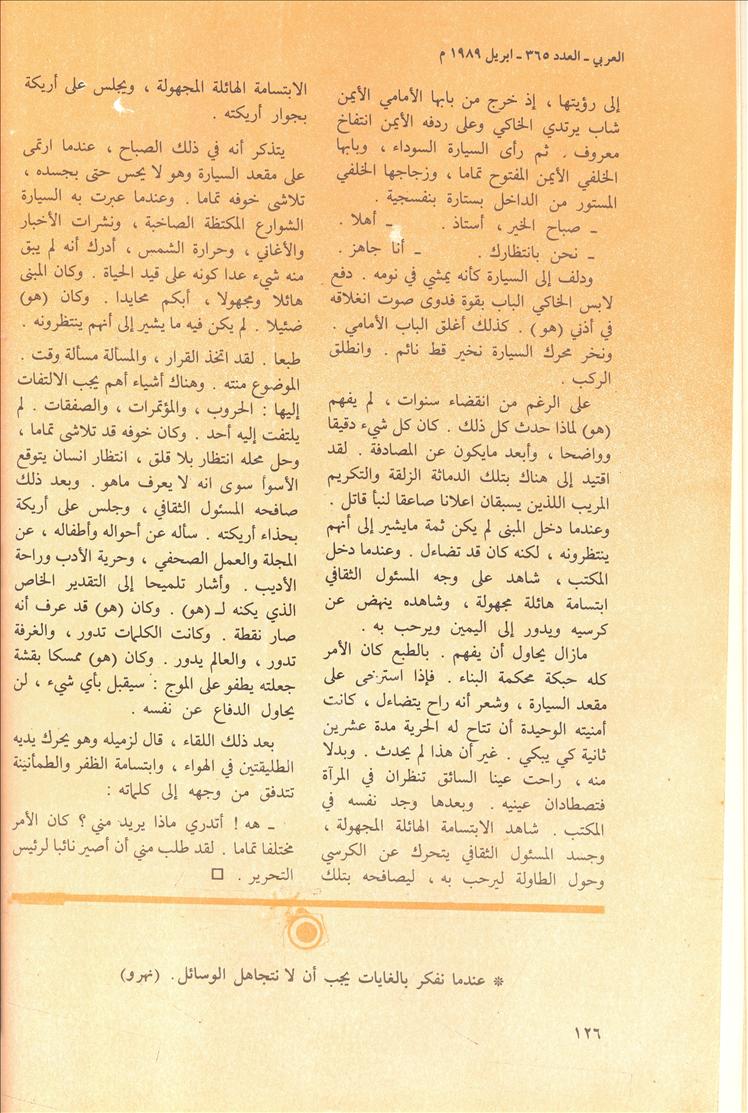 العربي ـ العدد ٣٦٥ ـ ابريل ١٩٨٩ م
إلى رؤيتها ، إذ خرج من بابها الأمامي الأيمن
شاب يرتدي الخاكي وعلى ردفه الأيمن انتفاخ
معروف . ثم رأى السيارة السوداء ، وبابها
الخلفي الأيمن المفتوح تماما ، وزجاجها الخلفي
المستور من الداخل بستارة بنفسجية .
ـ صباح الخير ، أستاذ . ـ أهلا .
ـ نحن بانتظارك . ـ أنا جاهز .
ودلف إلى السيارة كأنه يمشي في نومه . دفع
لابس الخاكي الباب بقوة فدوى صوت انغلاقه
في أذني (هو) . كذلك أغلق الباب الأمامي .
ونخر محرك السيارة نخير قط نائم . وانطلق
الركب .
على الرغم من انقضاء سنوات ، لم يفهم
(هو) لماذا حدث كل ذلك . كان كل شيء دقيقا
وواضحا ، وأبعد مايكون عن المصادفة . لقد
اقتيد إلى هناك بتلك الدماثة الزلقة والتكريم
المريب اللذين يسبقان اعلانا صاعقا لنبأ قاتل .
وعندما دخل المبنى لم يكن ثمة مايشير إلى أنهم
ينتظرونه ، لكنه كان قد تضاءل . وعندما دخل
المكتب ، شاهد على وجه المسئول الثقافي
ابتسامة هائلة مجهولة ، وشاهده ينهض عن
كرسيه ويدور إلى اليمين ويرحب به .
مازال يحاول أن يفهم . بالطبع كان الأمر
كله حبكة محكمة البناء . فإذا استرخى على
مقعد السيارة ، وشعر أنه راح يتضاءل ، كانت
أمنيته الوحيدة أن تتاح له الحرية مدة عشرين
ثانية كي يبكي . غير أن هذا لم يحدث . وبدلا
منه ، راحت عينا السائق تنظران في المرآة
فتصطادان عينيه . وبعدها وجد نفسه في
المكتب . شاهد الابتسامة الهائلة المجهولة ،
وجسد المسئول الثقافي يتحرك عن الكرسي
وحول الطاولة ليرحب به ، ليصافحه بتلك
الابتسامة الهائلة المجهولة ، ويجلس على أريكة
بجوار أريكته .
يتذكر أنه في ذلك الصباح ، عندما ارتمى
على مقعد السيارة وهو لا يحس حتى بجسده ،
تلاشى خوفه تماما . وعندما عبرت به السيارة
الشوارع المكتظة الصاخبة ، ونشرات الأخبار
والأغاني ، وحرارة الشمس ، أدرك أنه لم يبق
منه شيء عدا كونه على قيد الحياة . وكان المبنى
هائلا ومجهولا ، أبكم محايدا . وكان (هو)
ضئيلا . لم يكن فيه ما يشير إلى أنهم ينتظرونه .
طبعا . لقد اتخذ القرار ، والمسألة مسألة وقت .
الموضوع منته . وهناك أشياء أهم يجب الالتفات
إليها : الحروب ، والمؤتمرات ، والصفقات . لم
يلتفت إليه أحد . وكان خوفه قد تلاشى تماما ،
وحل محله انتظار بلا قلق ، انتظار انسان يتوقع
الأسوأ سوى انه لا يعرف ماهو . وبعد ذلك
صافحه المسئول الثقافي ، وجلس على أريكة
بحذاء أريكته . سأله عن أحواله وأطفاله ، عن
المجلة والعمل الصحفي ، وحرية الأدب وراحة
الأديب . وأشار تلميحا إلى التقدير الخاص
الذي يكنه لـ (هو) . وكان (هو) قد عرف أنه
صار نقطة . وكانت الكلمات تدور ، والغرفة
تدور ، والعالم يدور . وكان (هو) ممسكا بقشة
جعلته يطفو على الموج : سيقبل بأي شيء ، لن
يحاول الدفاع عن نفسه .
بعد ذلك اللقاء ، قال لزميله وهو يحرك يديه
الطليقتين في الهواء ، وابتسامة الظفر والطمأنينة
تتدفق من وجهه إلى كلماته :
ـ هه ! أتدري ماذا يريد مني ؟ كان الأمر
مختلفا تماما . لقد طلب مني أن أصير نائبا لرئيس
التحرير . □
* عندما نفكر بالغايات يجب أن لا نتجاهل الوسائل . (نهرو)
١٢٦